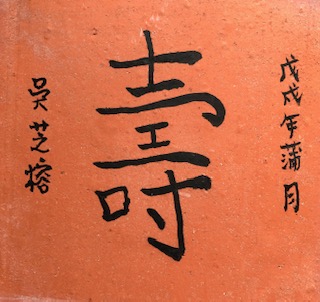 戊戌年蒲月
壽
吳芝榕